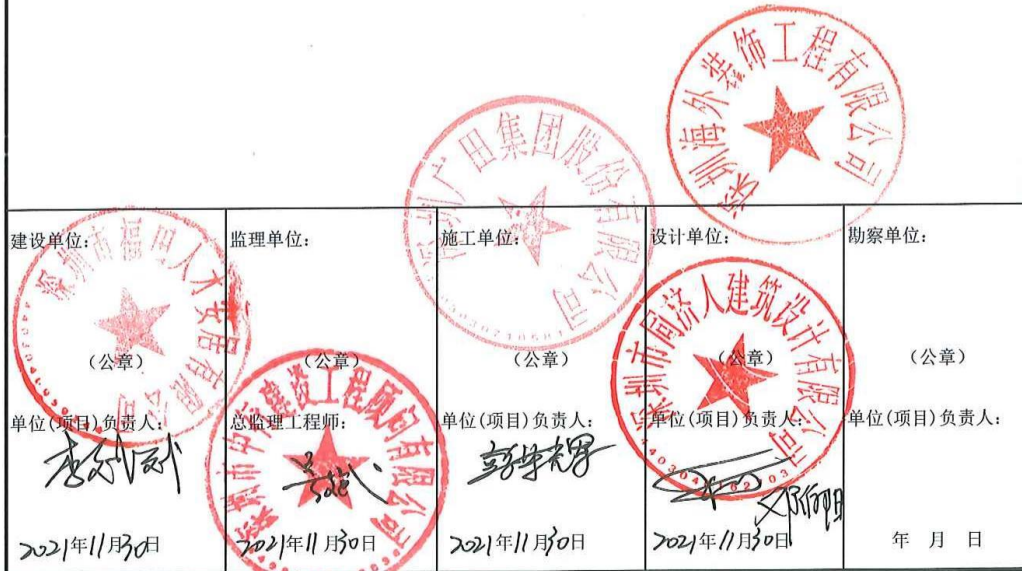 深圳海外装饰工程有限公司
深圳广田集团股份有限公司
建设单位:
监理单位:
施工单位:
设计单位:
勘察单位:
深圳市福田人才安居有限公司
深圳市同济人建筑设计有限公司
(公章)
(公章)
(公章)
(公章)
(公章)
单位(项目)负责人:
总监理工程师:
单位(项目)负责人:
单位(项目)负责人:
单位(项目)负责人:
2021年11月30日
2021年11月30日
2021年11月30日
2021年11月30日
年 月 日